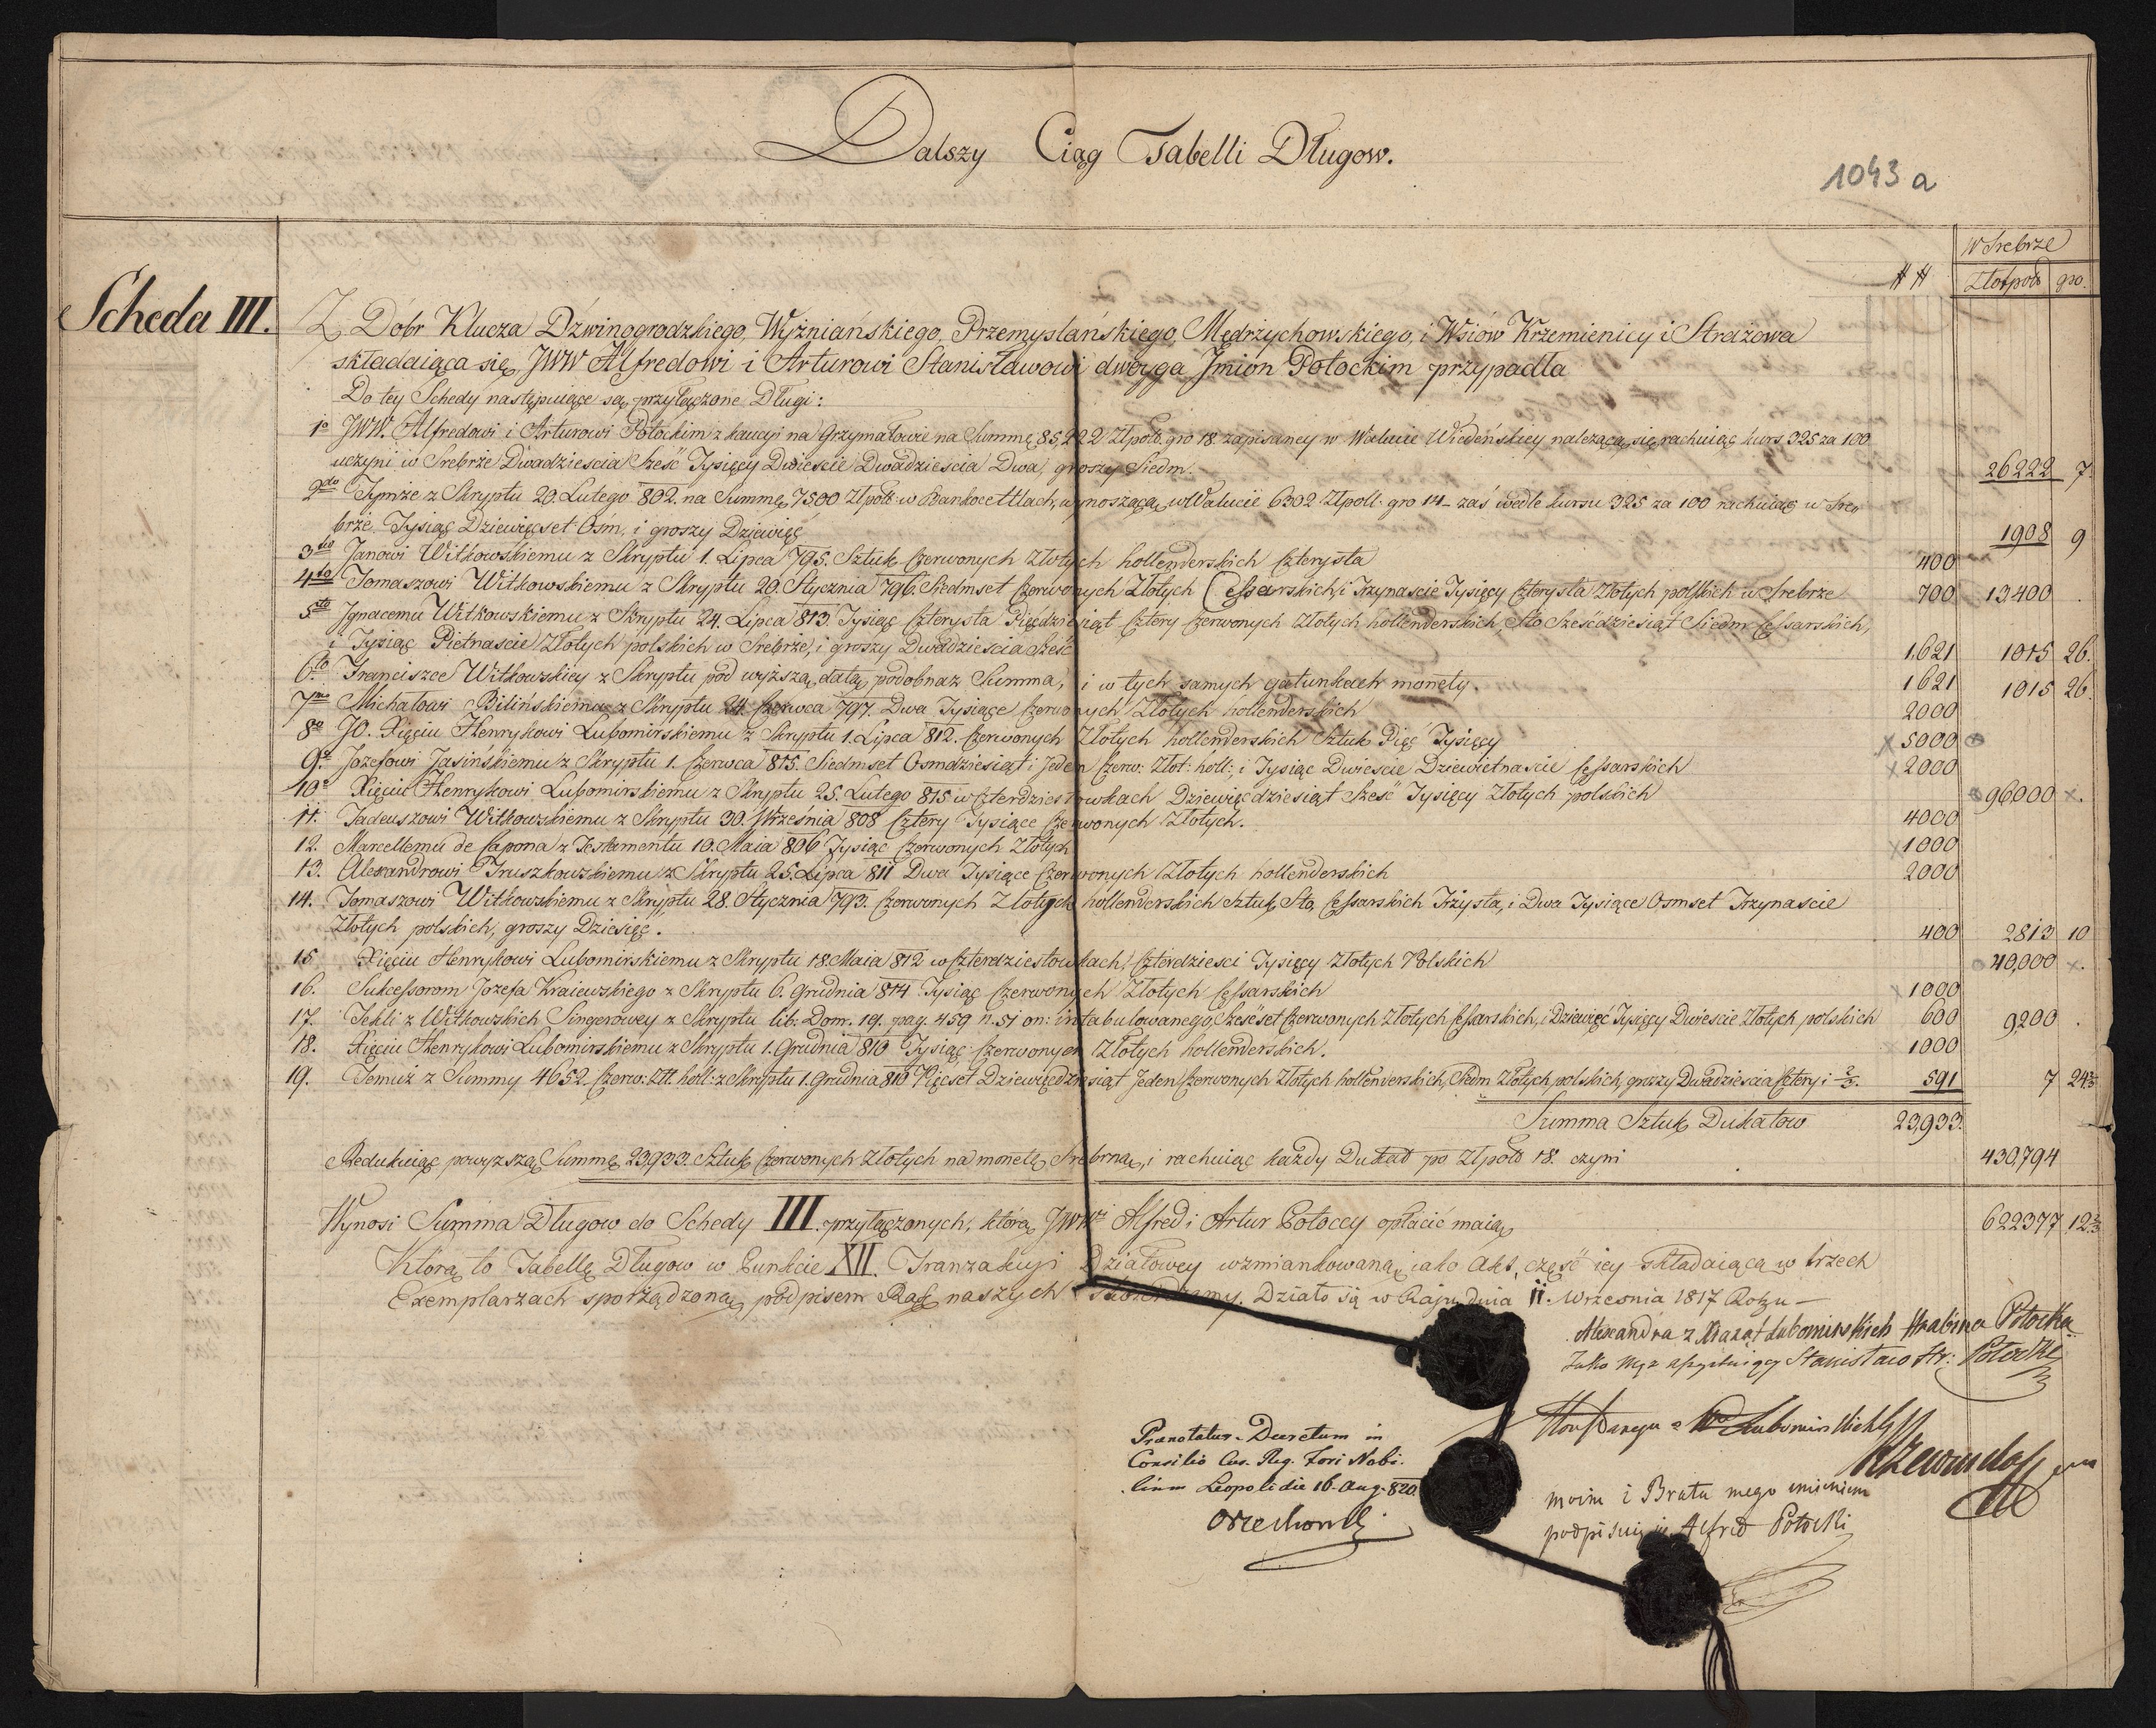 Dalszy Ciąg Tabelli Długow.
1043 a
W Srebrze
# # Złotpols gro.
Scheda III.
Z Dóbr Klucza Dźwinogrodzkiego, Wyżniańskiego, Przemyslańskiego, Mędrzychowskiego, i Wsiów Krzemienicy i Strażowa
składaiąca się, JWW Alfredowi i Arturowi Stanisławowi dwoyga Jmion Potockim przypadła
Do tey Schedy następuiące są przyłączone Długi:
1o JWW. Alfredowi i Arturowi Potockim z kaucyi na Grzymałowie na Summę 85,222 Złpols. gro 18 zapisaney w Walucie Wiedeńskiey należącą się, rachuiąc kurs 325 za 100
uczyni w Srebrze Dwadzieścia Sześć Tysięcy Dwieście Dwadzieścia Dwa, groszy Siedm. 26222 7.
2do Tymże z Skryptu 20. Lutego 802. na Summę 7500 Złpols w Bankocettlach, wynoszącą w Walucie 6302 Złpoll. gro 14 – zaś wedle kursu 325 za 100 rachuiąc w Sre
brze, Tysiąc Dziewięćset Ośm, i groszy Dziewięć 1908 9
3tio Janowi Witkowskiemu z Skryptu 1. Lipca 795. Sztuk Czerwonych Złotych hollenderskich Czterysta 400
4to Tomaszowi Witkowskiemu z Skryptu 20. Stycznia 796. Siedmset Czerwonych Złotych Cessarskich i Trzynaście Tysięcy Czterysta Złotych polskich w Srebrze 700 13,400 .
5to Jgnacemu Witkowskiemu z Skryptu 24. Lipca 813. Tysiąc Czterysta Pięćdziesiąt Cztery Czerwonych Złotych hollenderskich, Sto Sześćdziesiąt Siedm Cessarskich,
i Tysiąc Piętnaście Złotych polskich w Srebrze, i groszy Dwadzieścia Sześć 1,621 1015 26.
6to Franciszce Witkowskiey z Skryptu pod wyższą datą podobnaż Summa, i w tych samych gatunkach monety. 1621 1015 26.
7mo Michałowi Bilińskiemu z Skryptu 24. Czerwca 797. Dwa Tysiące Czerwonych Złotych hollenderskich 2000
8o JO. Xięciu Henrykowi Lubomirskiemu z Skryptu 1. Lipca 812. Czerwonych Złotych hollenderskich Sztuk Pięć Tysięcy 5000
9o Jozefowi Jasińskiemu z Skryptu 1. Czerwca 815. Siedmset Osmdziesiąt i Jeden Czerw: Złot: holl: i Tysiąc Dwieście Dziewiętnaście Cessarskich 2000
10o Xięciu Henrykowi Lubomirskiemu z Skryptu 25. Lutego 815 w Czterdziestowkach Dziewięćdziesiąt Sześć Tysięcy Złotych polskich 96,000 .
11. Tadeuszowi Witkowskiemu z Skryptu 30. Września 808 Cztery Tysiące Czerwonych Złotych. 4000
12. Marcellemu de Capona z Testamentu 10. Maia 806 Tysiąc Czerwonych Złotych 1000
13. Alexandrowi Truszkowskiemu z Skryptu 25. Lipca 811 Dwa Tysiące Czerwonych Złotych hollenderskich 2000
14. Tomaszowi Witkowskiemu z Skryptu 28. Stycznia 793. Czerwonych Złotych hollenderskich Sztuk Sto, Cessarskich Trzysta, i Dwa Tysiące Osmset Trzynaście
Złotych polskich, groszy Dziesięć. 400 2813 10
15 Xięciu Henrykowi Lubomirskiemu z Skryptu 18. Maia 812 w Czterdziestowkach, Czterdzieści Tysięcy Złotych Polskich 40,000 .
16. Sukcessorom Jozefa Kraiewskiego z Skryptu 6. Grudnia 814 Tysiąc Czerwonych Złotych Cessarskich 1000
17. Tekli z Witkowskich Singerowey z Skryptu lib: Dom. 19. pag. 459 n. 51 on: intabulowanego, Sześćset Czerwonych Złotych Cessarskich, i Dziewięć Tysięcy Dwieście Złotych polskich 600 9,200 .
18. Xięciu Henrykowi Lubomirskiemu z Skryptu 1. Grudnia 810 Tysiąc Czerwonych Złotych hollenderskich. 1000
19. Temuż z Summy 4652. Czerw: Złł. holl: z Skryptu 1. Grudnia 810 Pięćset Dziewięćdziesiąt Jeden Czerwonych Złotych hollenderskich, Siedm Złotych polskich, groszy Dwadzieścia Cztery i 2/5. 591 7 24 2/5
Summa Sztuk Dukatow 23,933.
Redukuiąc powyższą Summę 23,933. Sztuk Czerwonych Złotych na monetę Srebrną, i rachuiąc każdy Dukat po Złpols 18. czyni 430,794
Wynosi Summa Długow do Schedy III. przyłączonych, którą JWWni Alfred i Artur Potoccy opłacić maią 622377 12 2/5
Którą to Tabellę Długow w Punkcie XII. Tranzakcyi Działowey wzmiankowaną, iako Akt, część iey składaiącą w trzech
Exemplarzach sporządzoną, podpisem Rąk naszych stwierdzamy. Działo się w Raju dnia 11. Września 1817 Roku –
Alexandra z Xiążąt Lubomirskich Hrabina Potocka
Jako Mąż assystuiący Stanisław Hr: Potocki
Lubomirskich
Rzewuska
Prænotatur Decretum in
Consilio Cæs. Reg. Fori Nobi-
lium Leopoli die 16. Aug. 820
Orzechowski
moim i Brata mego imieniem
podpisuię się Alfred Potocki